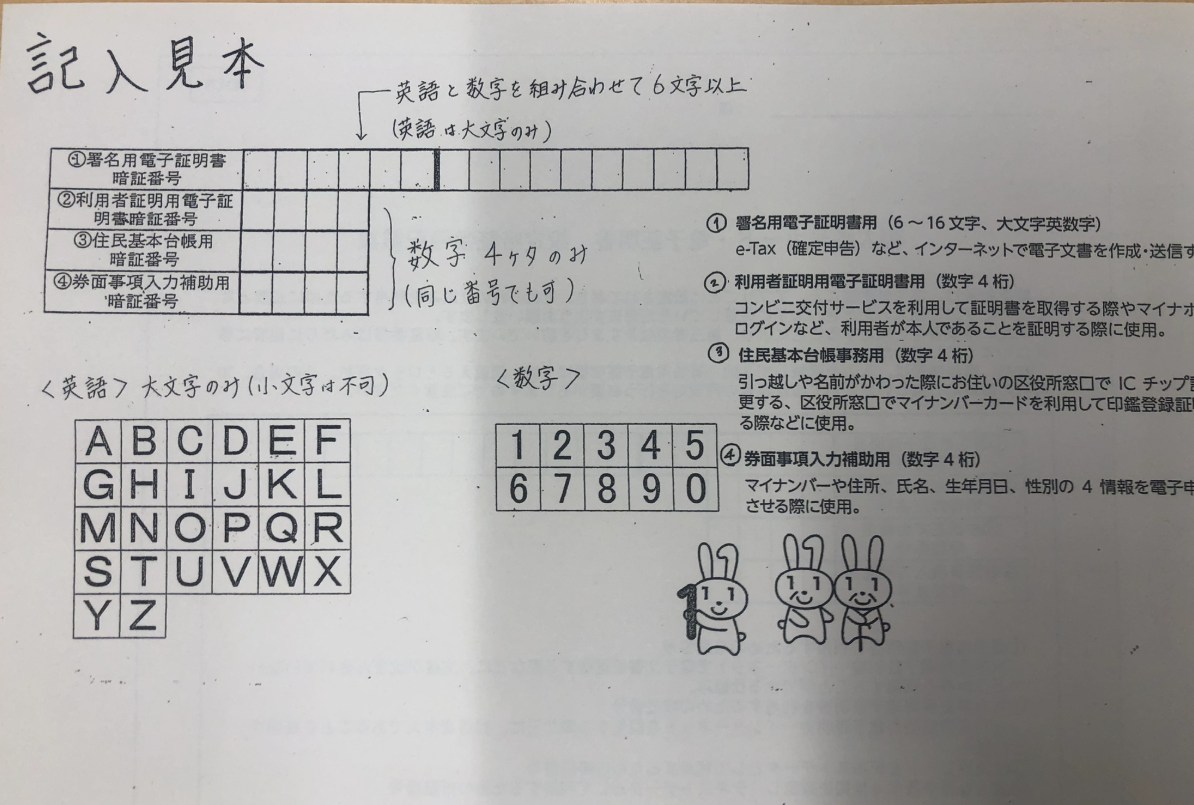 記入見本
英語と数字を組み合わせて6文字以上
(英語は大文字のみ)
①署名用電子証明書
暗証番号
②利用者証明用電子証
明書暗証番号
③住民基本台帳用
暗証番号
④券面事項入力補助用
暗証番号
数字4ケタのみ
(同じ番号でも可)
① 署名用電子証明書用(6~16文字、大文字英数字)
e-Tax(確定申告)など、インターネットで電子文書を作成・送信す
② 利用者証明用電子証明書用(数字4桁)
コンビニ交付サービスを利用して証明書を取得する際やマイナポ
ログインなど、利用者が本人であることを証明する際に使用。
③ 住民基本台帳事務用(数字4桁)
引っ越しや名前がかわった際にお住いの区役所窓口で IC チップ
更する、区役所窓口でマイナンバーカードを利用して印鑑登録証
る際などに使用。
④ 券面事項入力補助用(数字4桁)
マイナンバーや住所、氏名、生年月日、性別の 4 情報を電子申
させる際に使用。
<英語> 大文字のみ(小文字は不可)
A B C D E F
G H I J K L
M N O P Q R
S T U V W X
Y Z
<数字>
1 2 3 4 5
6 7 8 9 0